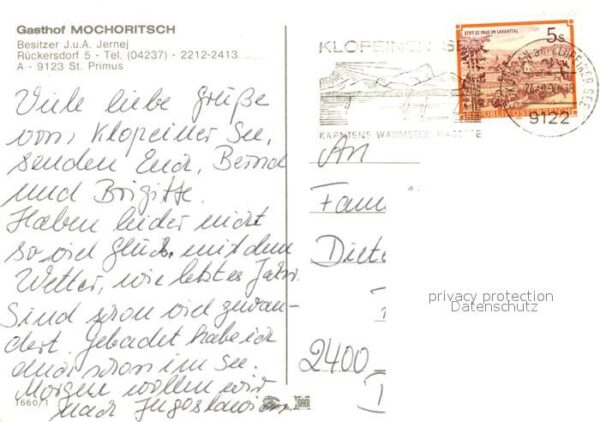 Gasthof MOCHORITSCH
Besitzer J.u.A. Jernej
Rückersdorf 5 - Tel. (04237) - 2212-2413
A - 9123 St. Primus
Viele liebe Grüße
vom Klopeiner See,
senden Euch, Bernd
und Brigitte.
Haben leider nicht
so viel Glück, mit dem
Wetter, wie letztes Jahr.
Sind schon viel gewan-
dert. Gebadet habe ich
auch schon im See.
Morgen wollen wir
nach Jugoslawien.
1660/1
KLOPEINER SEE
KÄRNTENS WÄRMSTER BADESEE
STIFT ST. PAUL IM LAVANTTAL
5s
REPUBLIK ÖSTERREICH
KLOPEINER SEE
9122
An
Fam
Diet
2400
privacy protection
Datenschutz